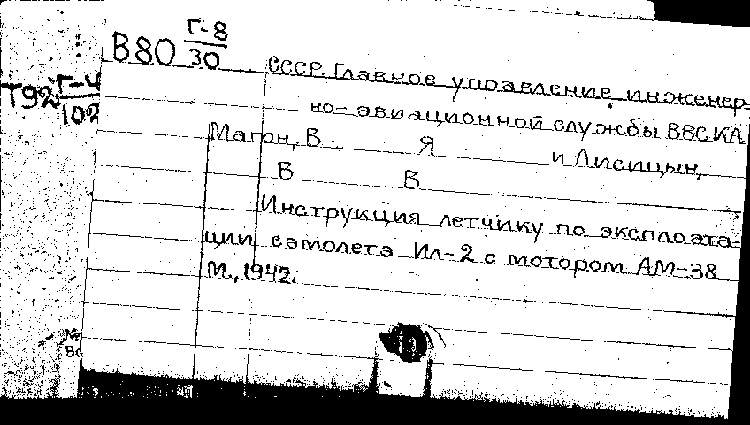 В80 Г-8
30
Т92 Г-4
102
СССР. Главное управление инженер-
но-авиационной службы ВВС КА
Магон, В Я и Лисицын,
В В
Инструкция летчику по эксплоата-
ции самолета Ил-2 с мотором АМ-38
М., 1942.